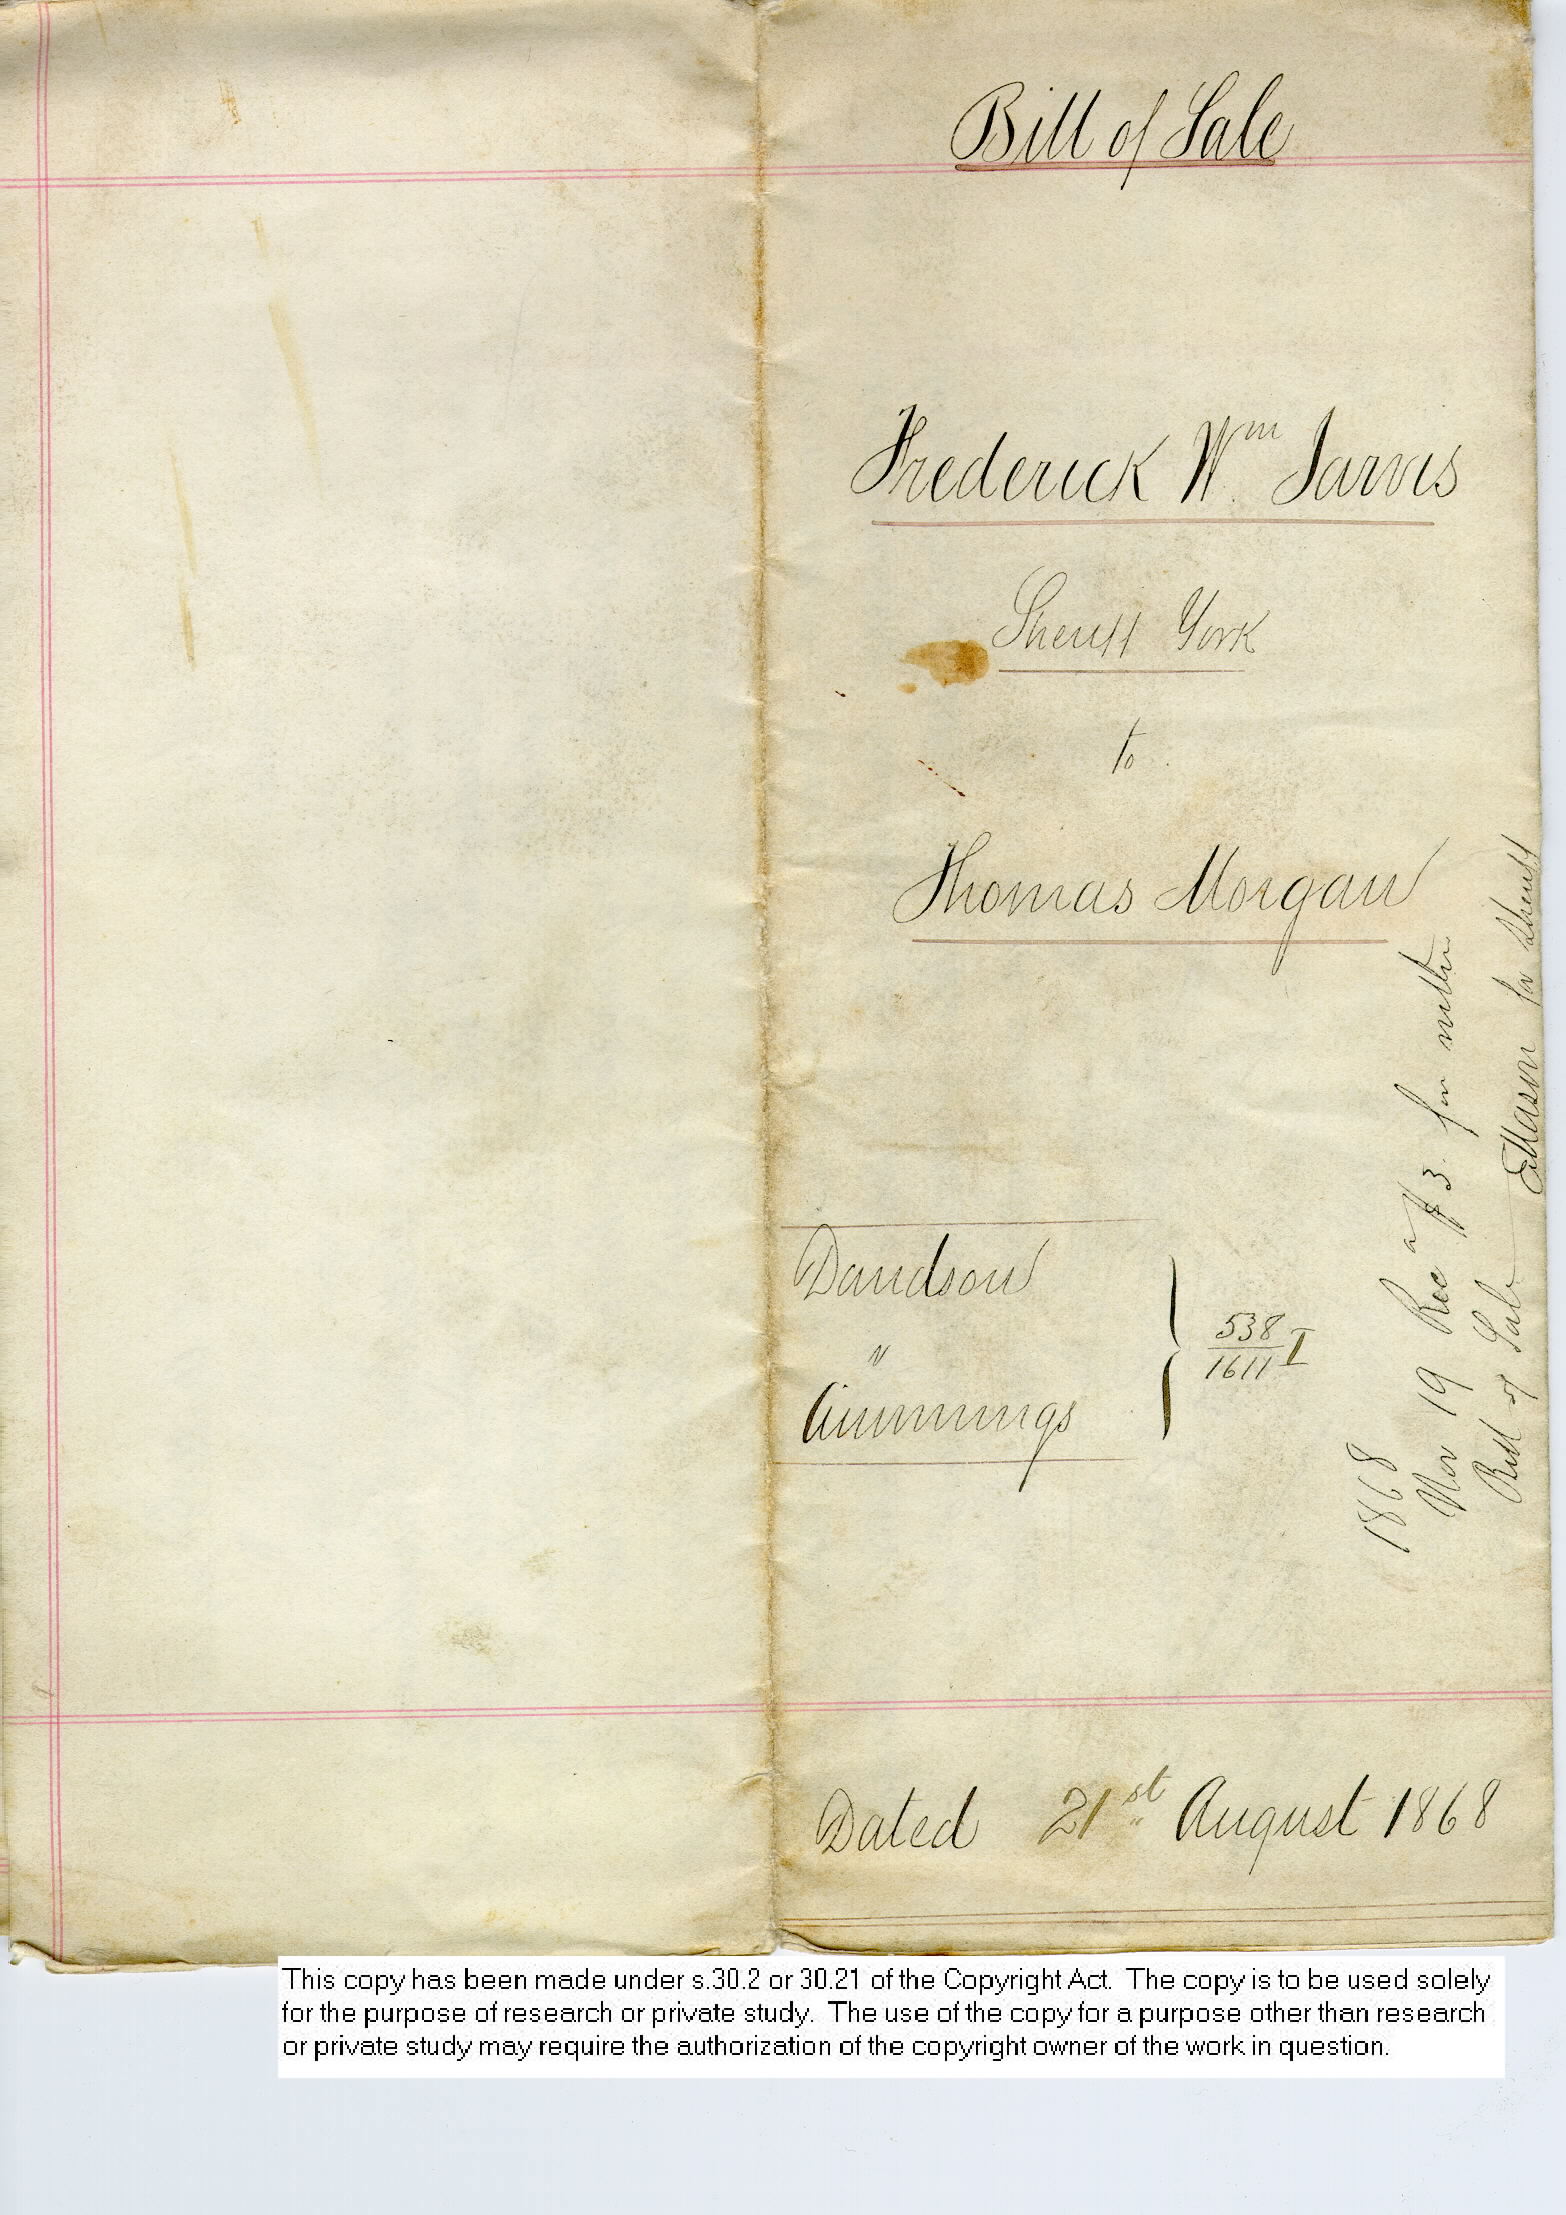 Bill of Sale
Frederick Wm Jarvis
Sheriff York
to
Thomas Morgan
Davidson
v
Cummings
538
1611 I
1868
Nov 19 Rec $3 for within
Bill of Sale
EMason for Sheriff
Dated 21st August 1868
This copy has been made under s.30.2 or 30.21 of the Copyright Act. The copy is to be used solely
for the purpose of research or private study. The use of the copy for a purpose other than research
or private study may require the authorization of the copyright owner of the work in question.